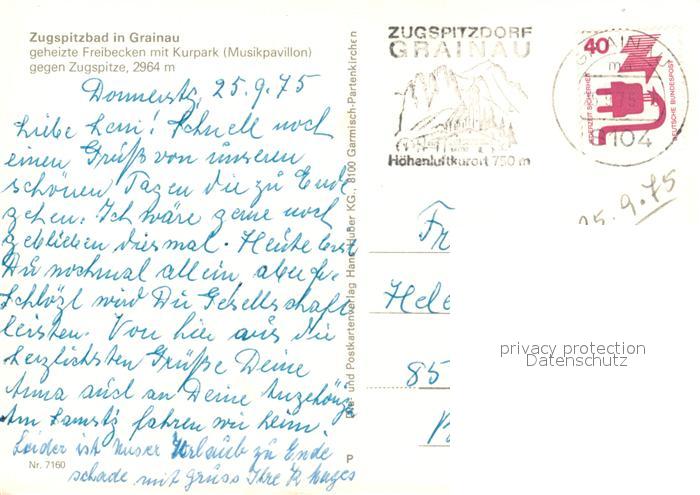 Zugspitzbad in Grainau
geheizte Freibecken mit Kurpark (Musikpavillon)
gegen Zugspitze, 2964 m
Donnerstg, 25.9.75
Liebe Leni! Schnell noch
einen Gruß von unseren
schönen Tagen die zu Ende
gehen. Ich wäre gerne noch
geblieben diesmal. Heute bist
Du nochmal allein, aber
wird Du Gesellschaft
leisten. Von hier aus die
herzlichsten Grüße Deine
Anna auch an Deine Angehörige
Am Samstg fahren wir heim.
Leider ist unser Urlaub zu Ende
schade mit gruss Ihre R
Nr. 7160
und Postkartenverlag Hans Huber KG., 8100 Garmisch-Partenkirchen
P
ZUGSPITZDORF
GRAINAU
Höhenluftkurort 750 m
40
JEDERZEIT SICHERHEIT
DEUTSCHE BUNDESPOST
104
25.9.75
Fr
Hele
85
privacy protection
Datenschutz